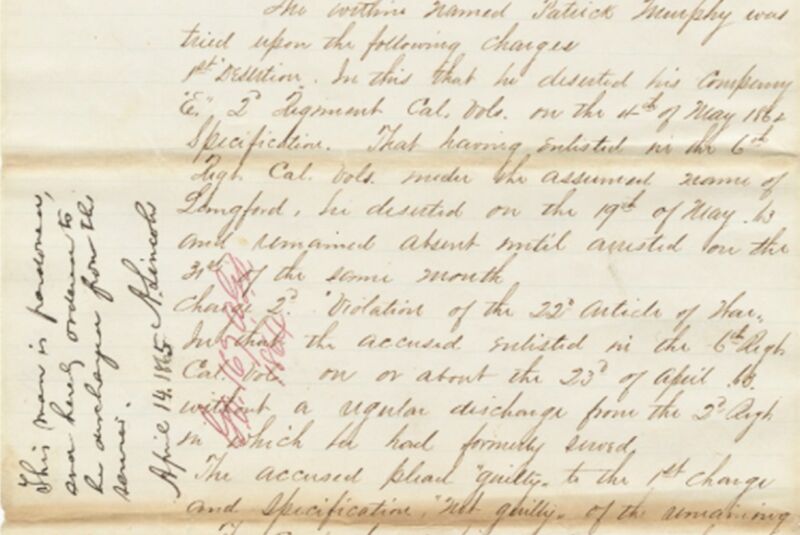 The within named Patrick Murphy was
tried upon the following charges
1st Desertion. In this that he deserted his Company
"E." 2d Regiment Cal. Vols. on the 4th of May 1862
Specification. That having enlisted in the 6th
Regt. Cal. Vols. under the assumed name of
Langford, he deserted on the 19th of May 63
and remained absent until arrested on the
31st of the same month
Charge 2d. "Violation of the 22d Article of War"
In that the accused enlisted in the 6th Regt
Cal. Vols. on or about the 23d of April 63.
without a regular discharge from the 2d Regt
in which he had formerly served
The accused plead "guilty" to the 1st Charge
and specification, "Not guilty" of the remaining
This man is pardoned,
and hereby ordered to
be discharged from the
service.
A. Lincoln
April 14, 1865